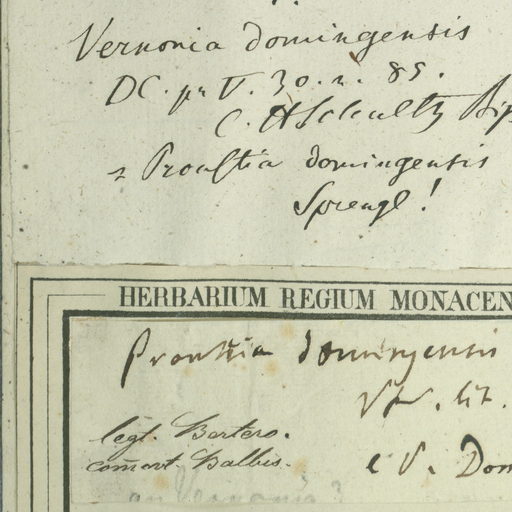 Vernonia domingensis
DC. pr. V. 30. n. 85.
C. H Schultz Bip
= Proustia domingensis
Sprengl!
HERBARIUM REGIUM MONACEN
Proustia domingensis
lit.
legt. Bertero.
comōt. Balbis.
e S. Dom
an Vernonia?